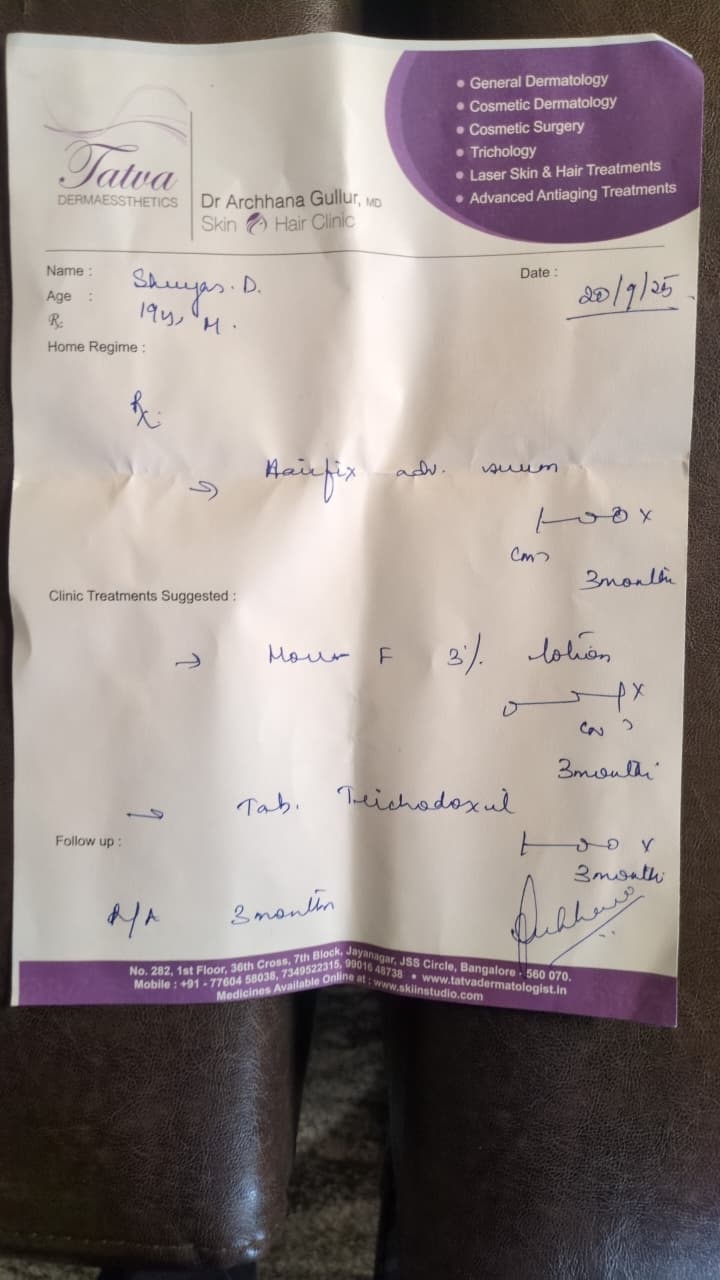 Tatva
DERMAESSTHETICS
Dr Archhana Gullur, MD
Skin Hair Clinic
• General Dermatology
• Cosmetic Dermatology
• Cosmetic Surgery
• Trichology
• Laser Skin & Hair Treatments
• Advanced Antiaging Treatments
Name : Shreyas. D.
Date : 20/9/25
Age : 19y, M.
Rx
Home Regime :
Rx
→ Hairfix adv. serum
1—0—0 x
3 months
Clinic Treatments Suggested :
→ F 3% lotion
0—0—1 x
3 months
→ Tab. Trichodoxil
1—0—0 x
Follow up :
3 months
R/A 3 months
No. 282, 1st Floor, 36th Cross, 7th Block, Jayanagar, JSS Circle, Bangalore - 560 070.
Mobile : +91 - 77604 58038, 7349522315, 99016 48738 • www.tatvadermatologist.in
Medicines Available Online at : www.skiinstudio.com